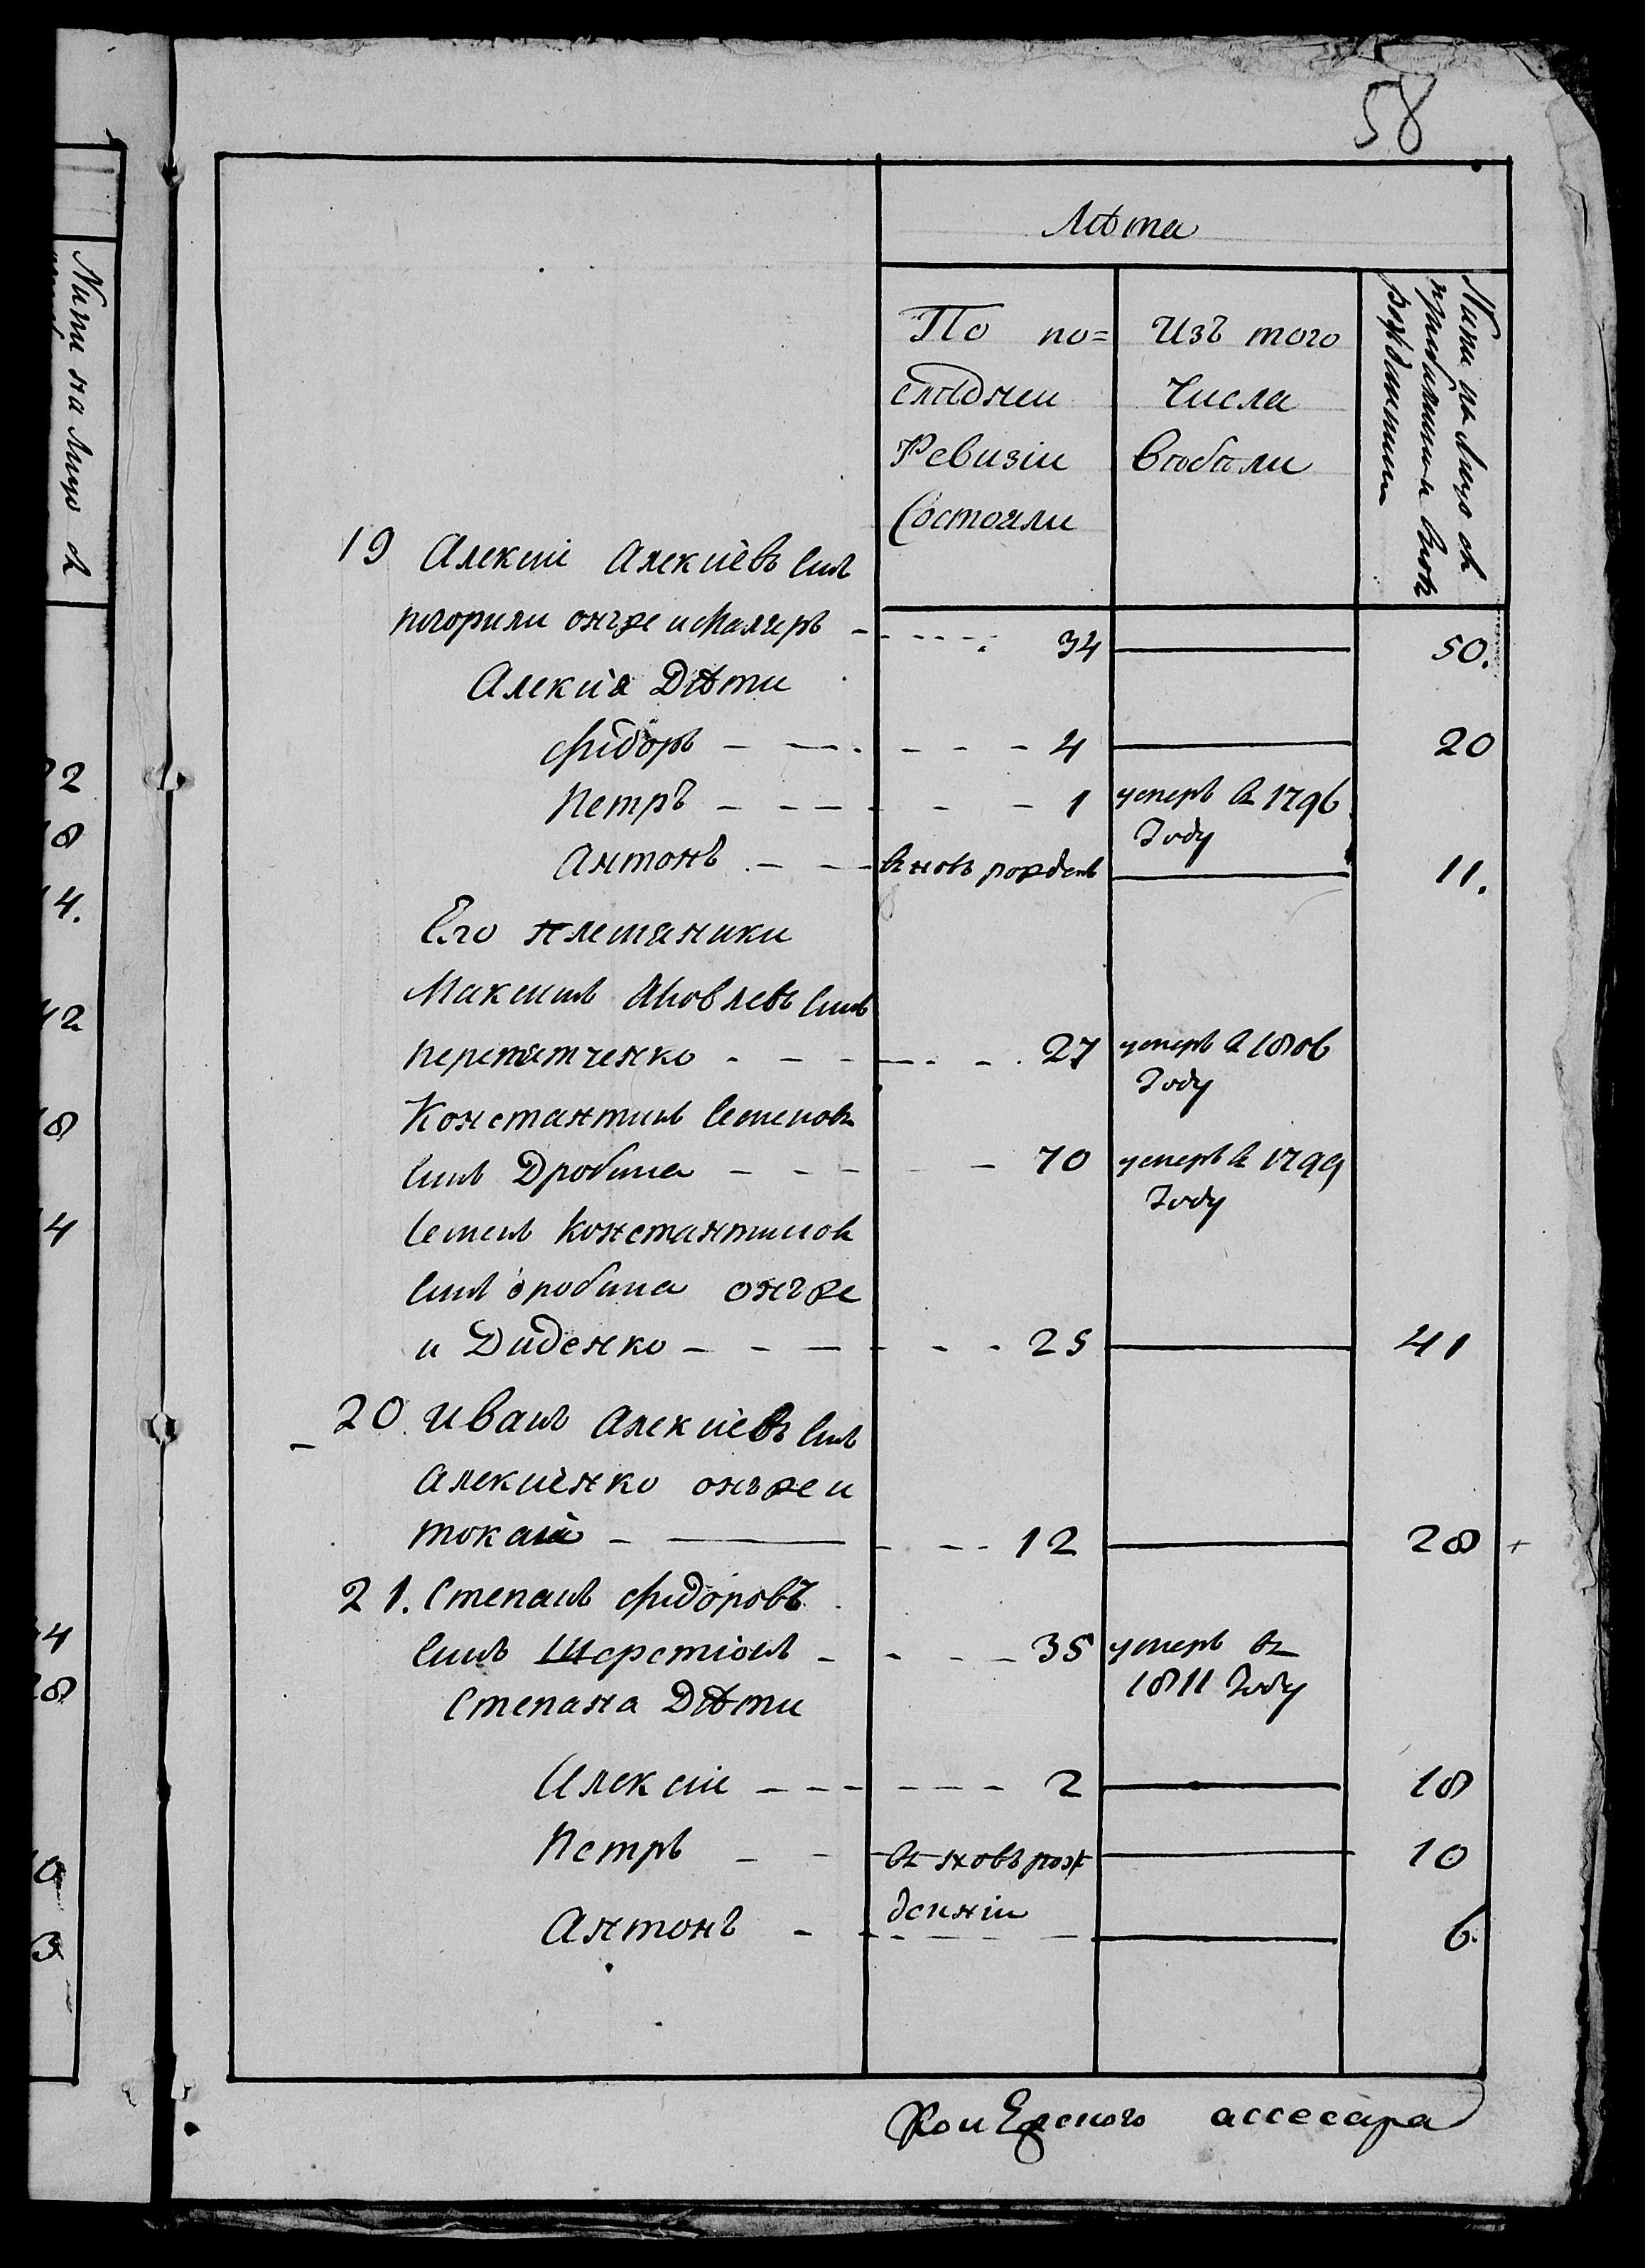 58
Лѣта
По по=
слѣдней
Ревизіи
Состояли
Изъ того
Числа
выбыли
Нинѣ на лицо съ
прибилими и вновъ
рожденними
19 Алексій Алексіевъ синъ
онъ же и Маляръ 34 — 50.
Алексія Дѣти
Фідоръ 4 — 20
Петръ 1 умеръ въ 1796
Году
Антонъ вновь рожденъ — 11.
Его племяники
Максимъ Яковлевъ синъ
Перепятченко 27 умеръ въ 1806
Году
Константинъ Семеновъ
синъ Дробина 70 умеръ въ 1799
Году
Семенъ Константиновъ
синъ Дробина онъ же
и Диденко 25 — 41
20. Иванъ Алексіевъ синъ
Алексіенко онъ же и
Токарь 12 — 28 +
21. Степанъ Фідоровъ
синъ Шерстюкъ 35 умеръ въ
1811 Году
Степана Дѣти
Алексій 2 — 18
Петръ въ новъ рож — 10
денніи
Антонъ — 6.
ассесара
Нинѣ на лицо съ
22
18
14.
12
18
14